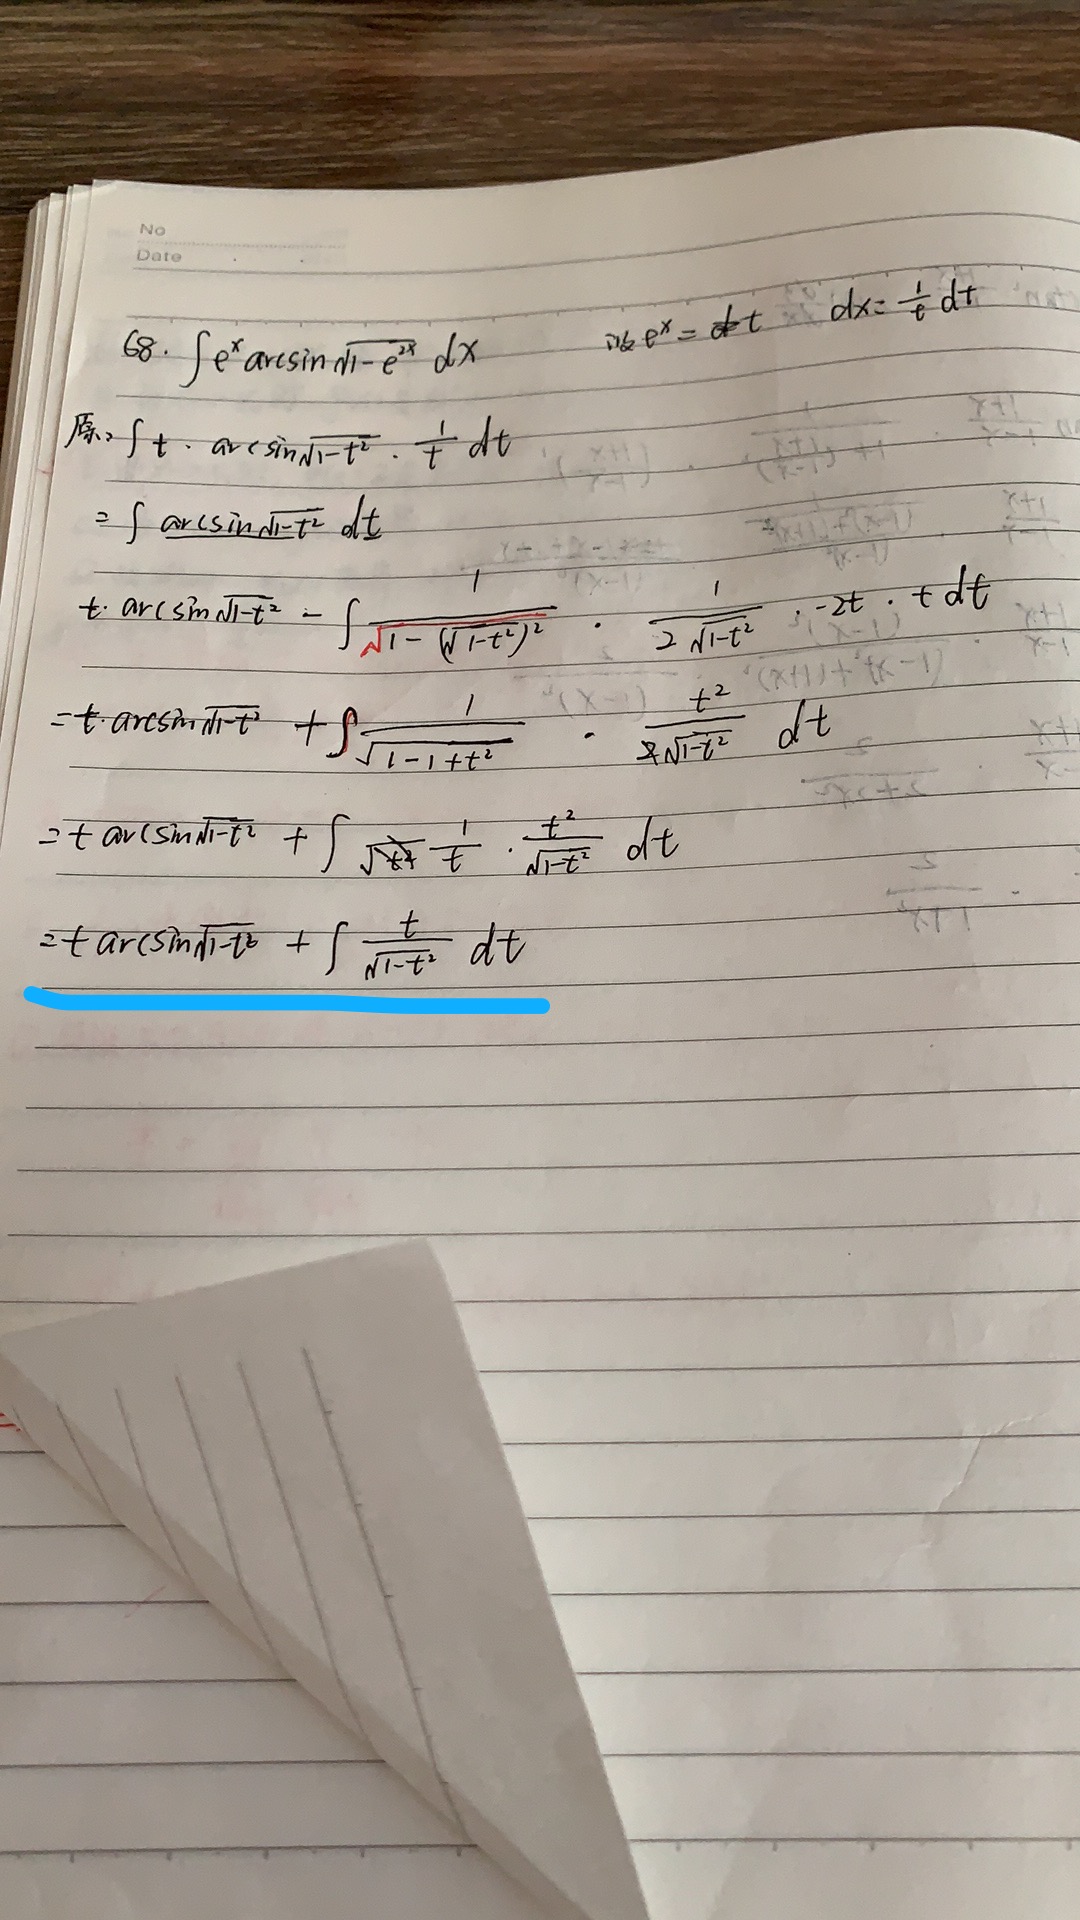 No
Date
68. ∫e^x arcsin√(1-e^(2x)) dx 设e^x = t dx = 1/t dt
原 = ∫ t · arcsin√(1-t²) · 1/t dt
= ∫ arcsin√(1-t²) dt
t · arcsin√(1-t²) - ∫ 1/√(1-(√(1-t²))²) · 1/(2√(1-t²)) · -2t · t dt
= t · arcsin√(1-t²) + ∫ 1/√(1-1+t²) · t²/√(1-t²) dt
= t arcsin√(1-t²) + ∫ 1/t · t²/√(1-t²) dt
= t arcsin√(1-t²) + ∫ t/√(1-t²) dt